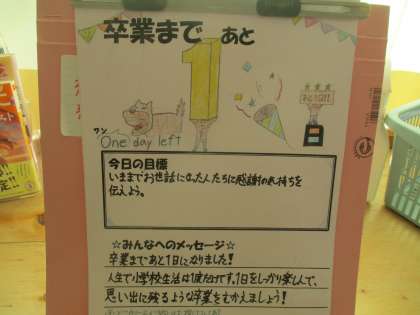 卒業まで あと
1
ワン
One day left
今日の目標
いままでお世話になった人たちに感謝の気持ちを
伝えよう。
☆みんなへのメッセージ☆
卒業まであと1日になりました！
人生で小学校生活は1度だけです。1日をしっかり楽しんで、
思い出に残るような卒業をむかえましょう！